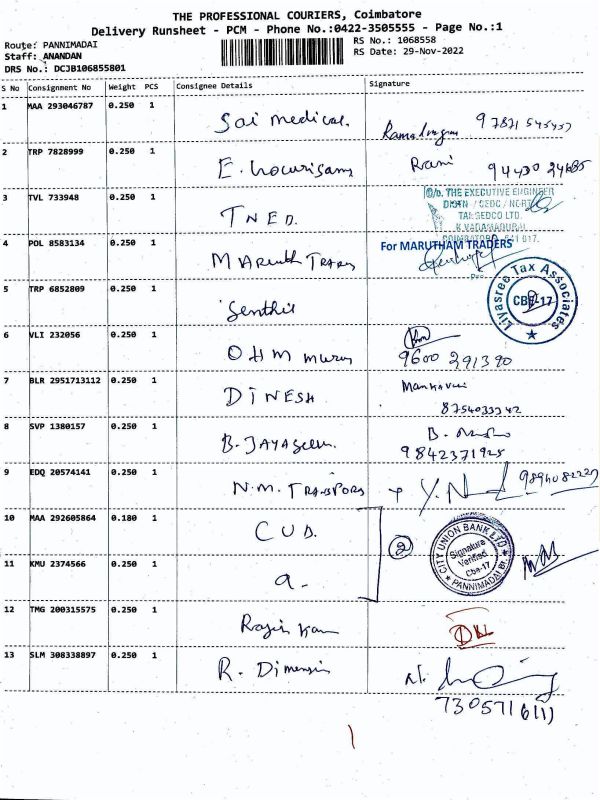 THE PROFESSIONAL COURIERS, Coimbatore
Delivery Runsheet - PCM - Phone No.:0422-3505555 - Page No.:1
Route: PANNIMADAI
RS No.: 1068558
Staff: ANANDAN
RS Date: 29-Nov-2022
DRS No.: DCJB106855801
S No Consignment No Weight PCS Consignee Details Signature
1 MAA 293046787 0.250 1 Sai medical.
2 TRP 7828999 0.250 1 Rani
94430 24685
3 TVL 733948 0.250 1 TNED.
THE EXECUTIVE ENGINEER
TANGEDCO LTD.
4 POL 8583134 0.250 1
For MARUTHAM TRADERS
5 TRP 6852809 0.250 1 Senthil
Livasree Tax Associates
CBE-17
6 VLI 232056 0.250 1 OHM
9600 291390
7 BLR 2951713112 0.250 1 DINESH
8754033342
8 SVP 1380157 0.250 1 B.
9842371925
9 EDQ 20574141 0.250 1 N.M. Y.N
10 MAA 292605864 0.180 1 CUB. 2
CITY UNION BANK LTD
Signature
Verified
Cbe-17
PANNIMADAI Br.
11 KMU 2374566 0.250 1
12 TMG 200315575 0.250 1
13 SLM 308338897 0.250 1 R.